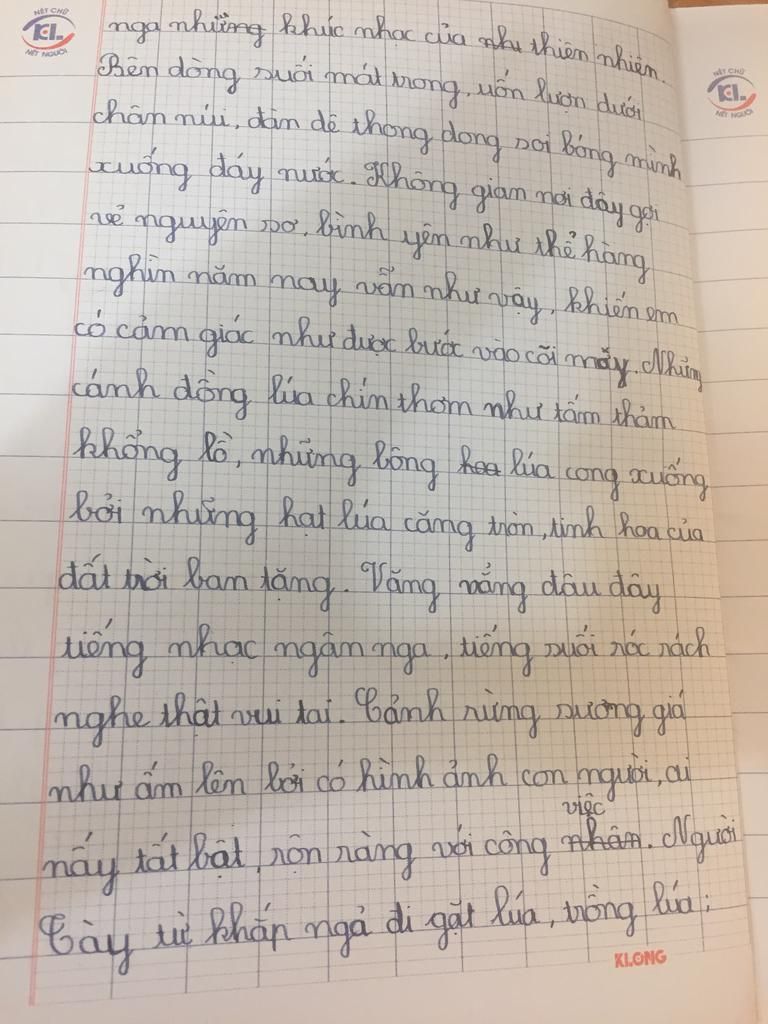 NÉT CHỮ
KL
NÉT NGƯỜI
nga những khúc nhạc của như thiên nhiên.
Bên dòng suối mát trong, uốn lượn dưới
chân núi, đàn dê thong dong soi bóng mình
xuống đáy nước. Không gian nơi đây gợi
vẻ nguyên sơ, bình yên như thể hàng
nghìn năm nay vẫn như vậy, khiến em
có cảm giác như được bước vào cõi mơ. Những
cánh đồng lúa chín thơm như tấm thảm
khổng lồ, những bông hoa lúa cong xuống
bởi những hạt lúa căng tròn, tinh hoa của
đất trời ban tặng. Văng vẳng đâu đây
tiếng nhạc ngâm nga, tiếng suối róc rách
nghe thật vui tai. Cảnh rừng sương giá
như ấm lên bởi có hình ảnh con người, ai
việc
nấy tất bật, rộn ràng với công nhân. Người
Tày từ khắp ngả đi gặt lúa, trồng lúa;
KLONG
NÉT CHỮ
KL
NÉT NGƯỜI